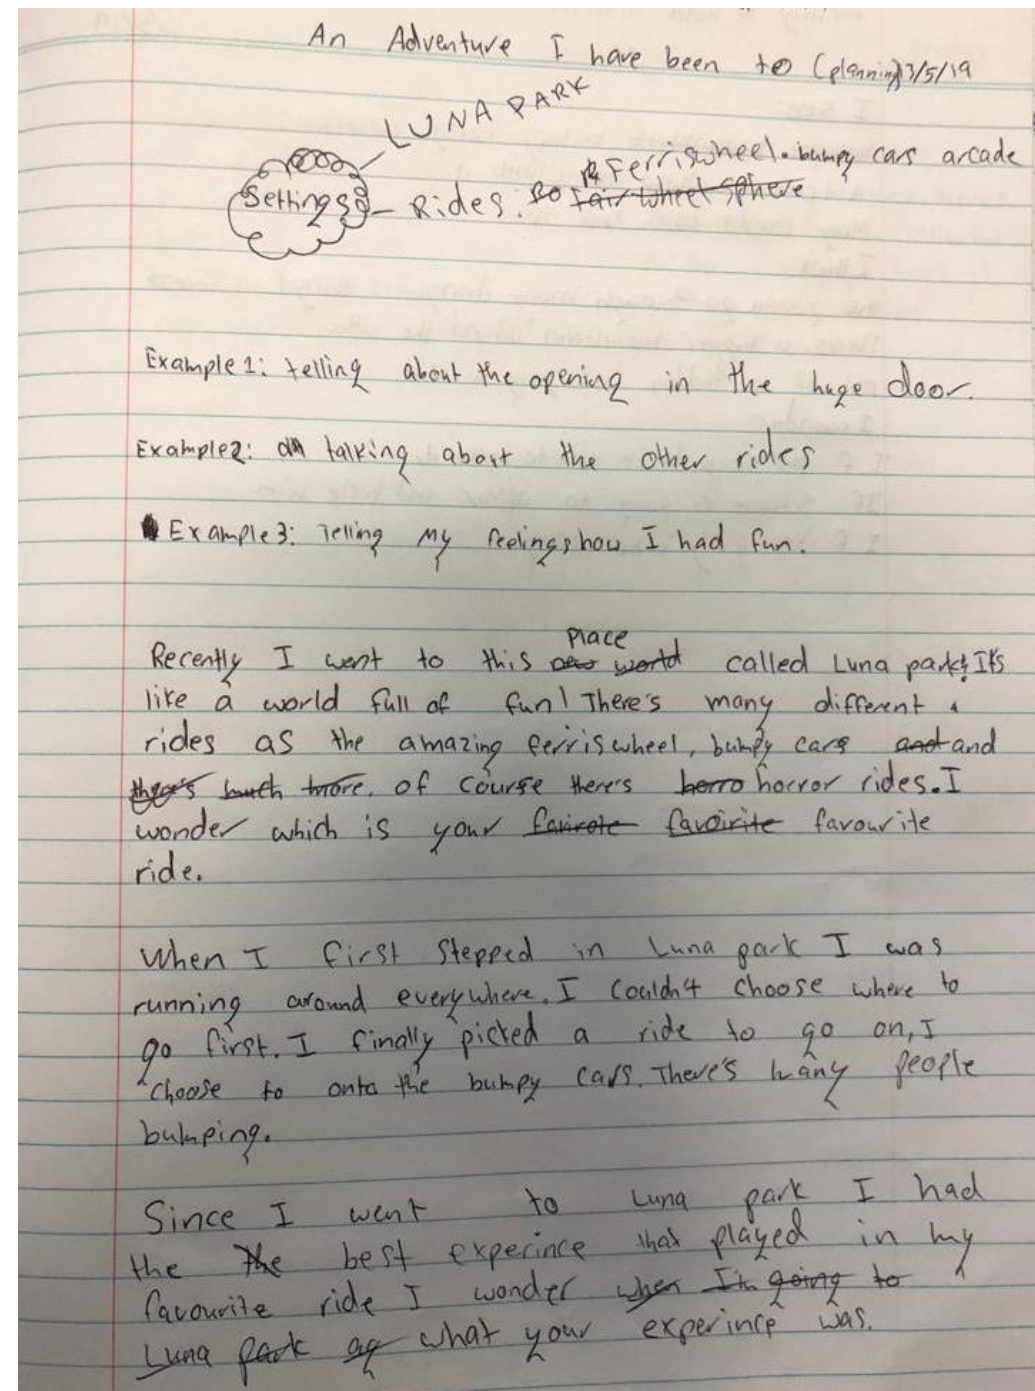 An Adventure I have been to (planning) 3/5/19
LUNA PARK
Ferriswheel. bumpy cars arcade
Settings - Rides. so fair wheel sphere
Example 1: telling about the opening in the huge door.
Example 2: talking about the other rides
Example 3: Telling my feelings how I had fun.
place
Recently I went to this new world called Luna park! It's
like a world full of fun! There's many different
rides as the amazing ferris wheel, bumpy cars and and
there's much more. of course there's horro horror rides. I
wonder which is your farirote favoirite favourite
ride.
When I first stepped in Luna park I was
running around everywhere. I couldn't choose where to
go first. I finally picked a ride to go on, I
choose to onto the bumpy cars. There's many people
bumping.
Since I went to Luna park I had
the the best experince that played in my
favourite ride I wonder when I'm going to
Luna park ag what your experince was.